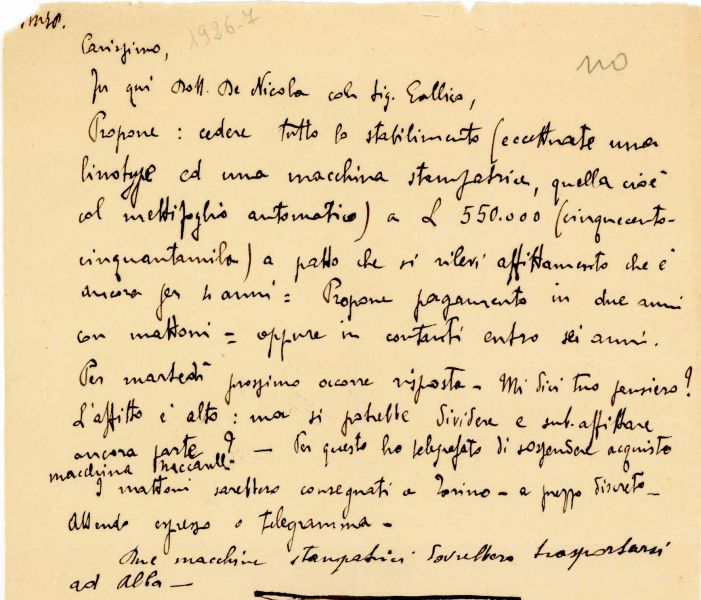 1926-7
no
Carissimo,
Fu qui Dott. De Nicola col Sig. Gallico,
Propone : cedere tutto lo stabilimento (eccettuate una
linotype ed una macchina stampatrice, quella cioè
col mettifoglio automatico) a £ 550.000 (cinquecento-
cinquantamila) a patto che si rilevi affittamento che è
ancora per 4 anni = Propone pagamento in due anni
con mattoni = oppure in contanti entro sei anni.
Per martedì prossimo occorre risposta - Mi dici tuo pensiero?
L'affitto è alto : ma si potrebbe dividere e sub-affittare
ancora parte? — Per questo ho telegrafato di sospendere acquisto
macchina
I mattoni sarebbero consegnati a Torino - a prezzo discreto -
Attendo espresso o telegramma -
Due macchine stampatrici dovrebbero trasportarsi
ad Alba —